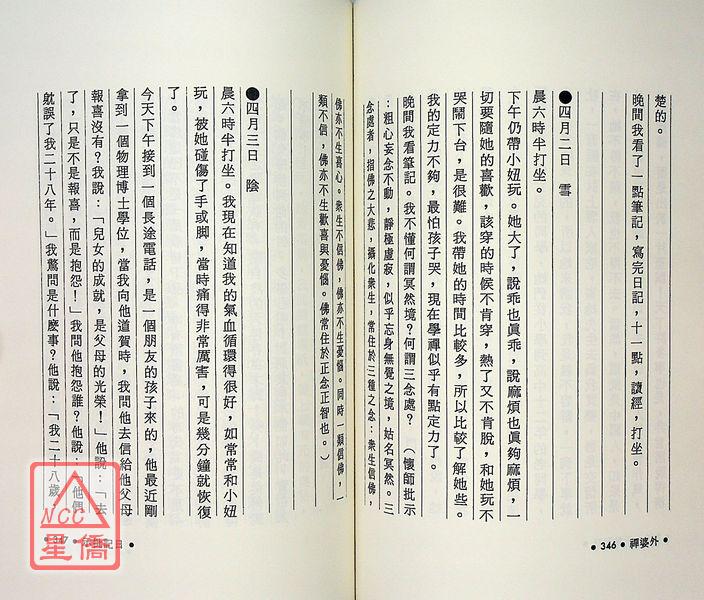 楚的。
晚間我看了一點筆記，寫完日記，十一點，讀經，打坐。
●四月二日　雪
晨六時半打坐。
下午仍帶小妞玩。她大了，說乖也眞乖，說麻煩也眞夠麻煩，一
切要隨她的喜歡，該穿的時候不肯穿，熱了又不肯脫，和她玩不
哭鬧下台，是很難。我帶她的時間比較多，所以比較了解她些。
我的定力不夠，最怕孩子哭，現在學禪似乎有點定力了。
晚間我看筆記。我不懂何謂冥然境？何謂三念處？　（懷師批示
：粗心妄念不動，靜極虛寂，似乎忘身無覺之境，姑名冥然。三
念處者，指佛之大悲，攝化衆生，常住於三種之念：衆生信佛，
佛亦不生喜心。衆生不信佛，佛亦不生憂惱。同時一類信佛，一
類不信，佛亦不生歡喜與憂惱。佛常住於正念正智也。）
●四月三日　陰
晨六時半打坐。我現在知道我的氣血循環得很好，如常常和小妞
玩，被她碰傷了手或脚，當時痛得非常厲害，可是幾分鐘就恢復
了。
今天下午接到一個長途電話，是一個朋友的孩子來的，他最近剛
拿到一個物理博士學位，當我向他道賀時，我問他去信給他父母
報喜沒有？我說：「兒女的成就，是父母的光榮！」他說：「去
了，只是不是報喜，而是抱怨！」我問他抱怨誰？他說：「他們
躭誤了我二十八年。」我驚問是什麼事？他說：「我二十八歲，
•346•外婆禪•
NCC
星僑
記日•